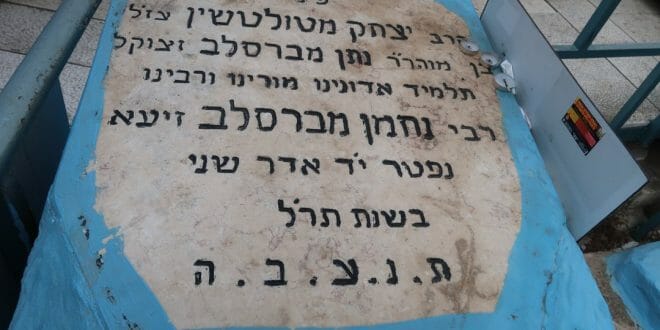 הרב יצחק מטולטשין זצ"ל
בן מוהר"ר נתן מברסלב זצוקל
תלמיד אדונינו מורינו ורבינו
רבי נחמן מברסלב זיעא
נפטר י"ד אדר שני
בשנת תר"ל
ת.נ.צ.ב.ה